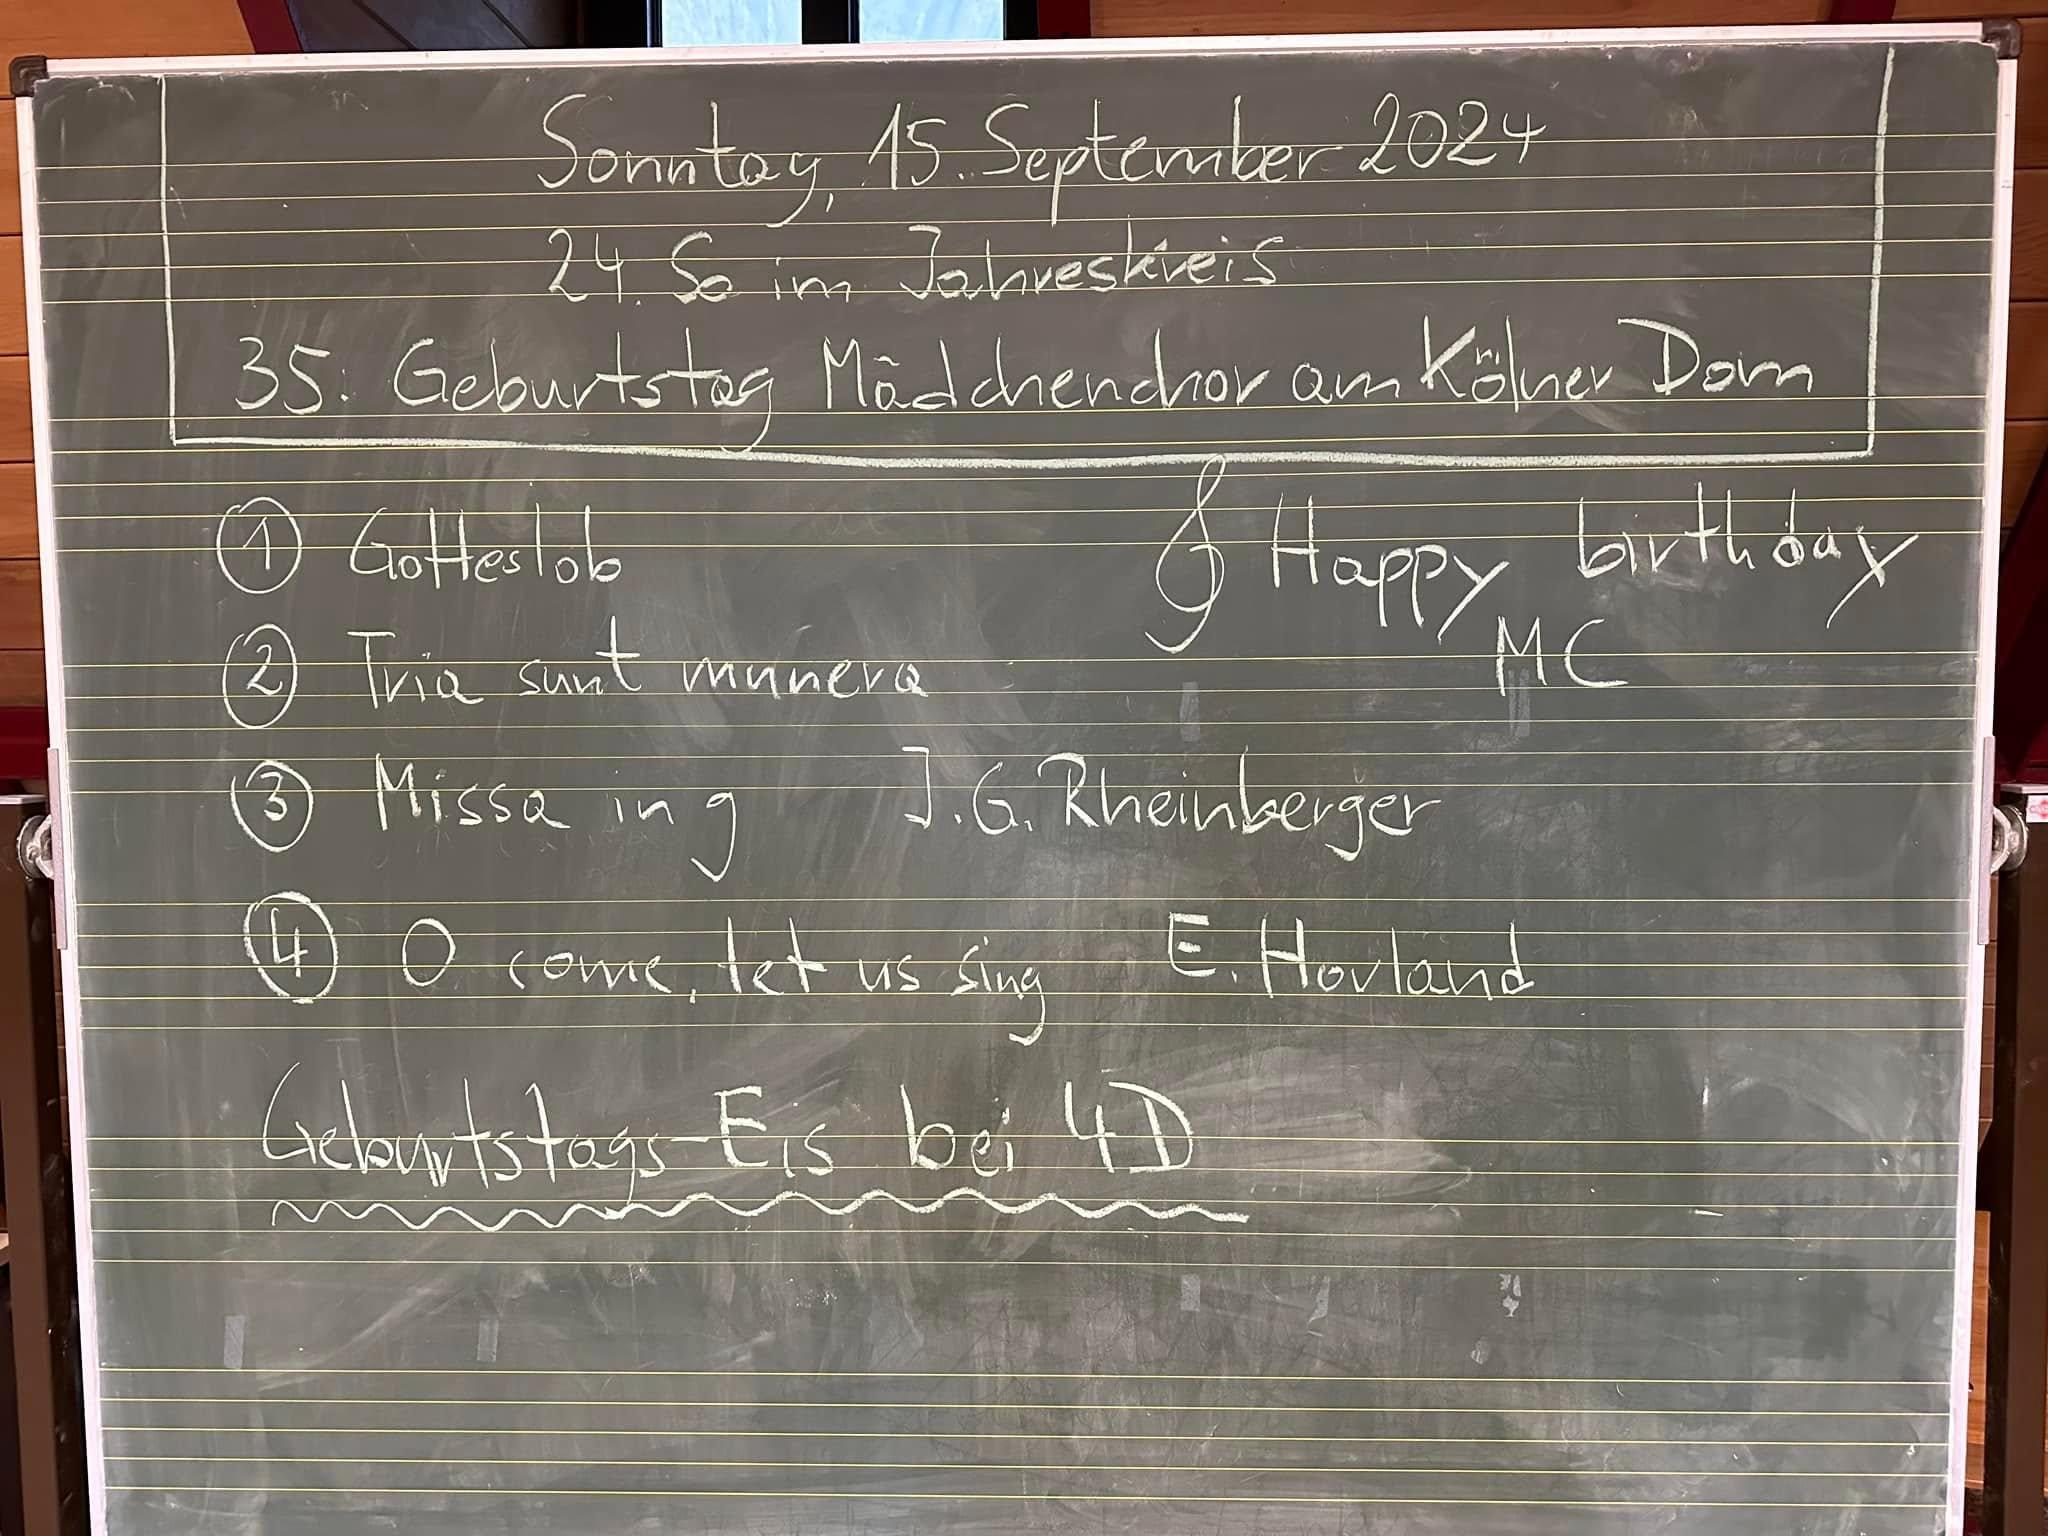 Sonntag, 15. September 2024
24. So im Jahreskreis
35. Geburtstag Mädchenchor am Kölner Dom
① Gotteslob
Happy birthday
MC
② Tria sunt munera
③ Missa in g J. G. Rheinberger
④ O come, let us sing E. Hovland
Geburtstags-Eis bei 4D